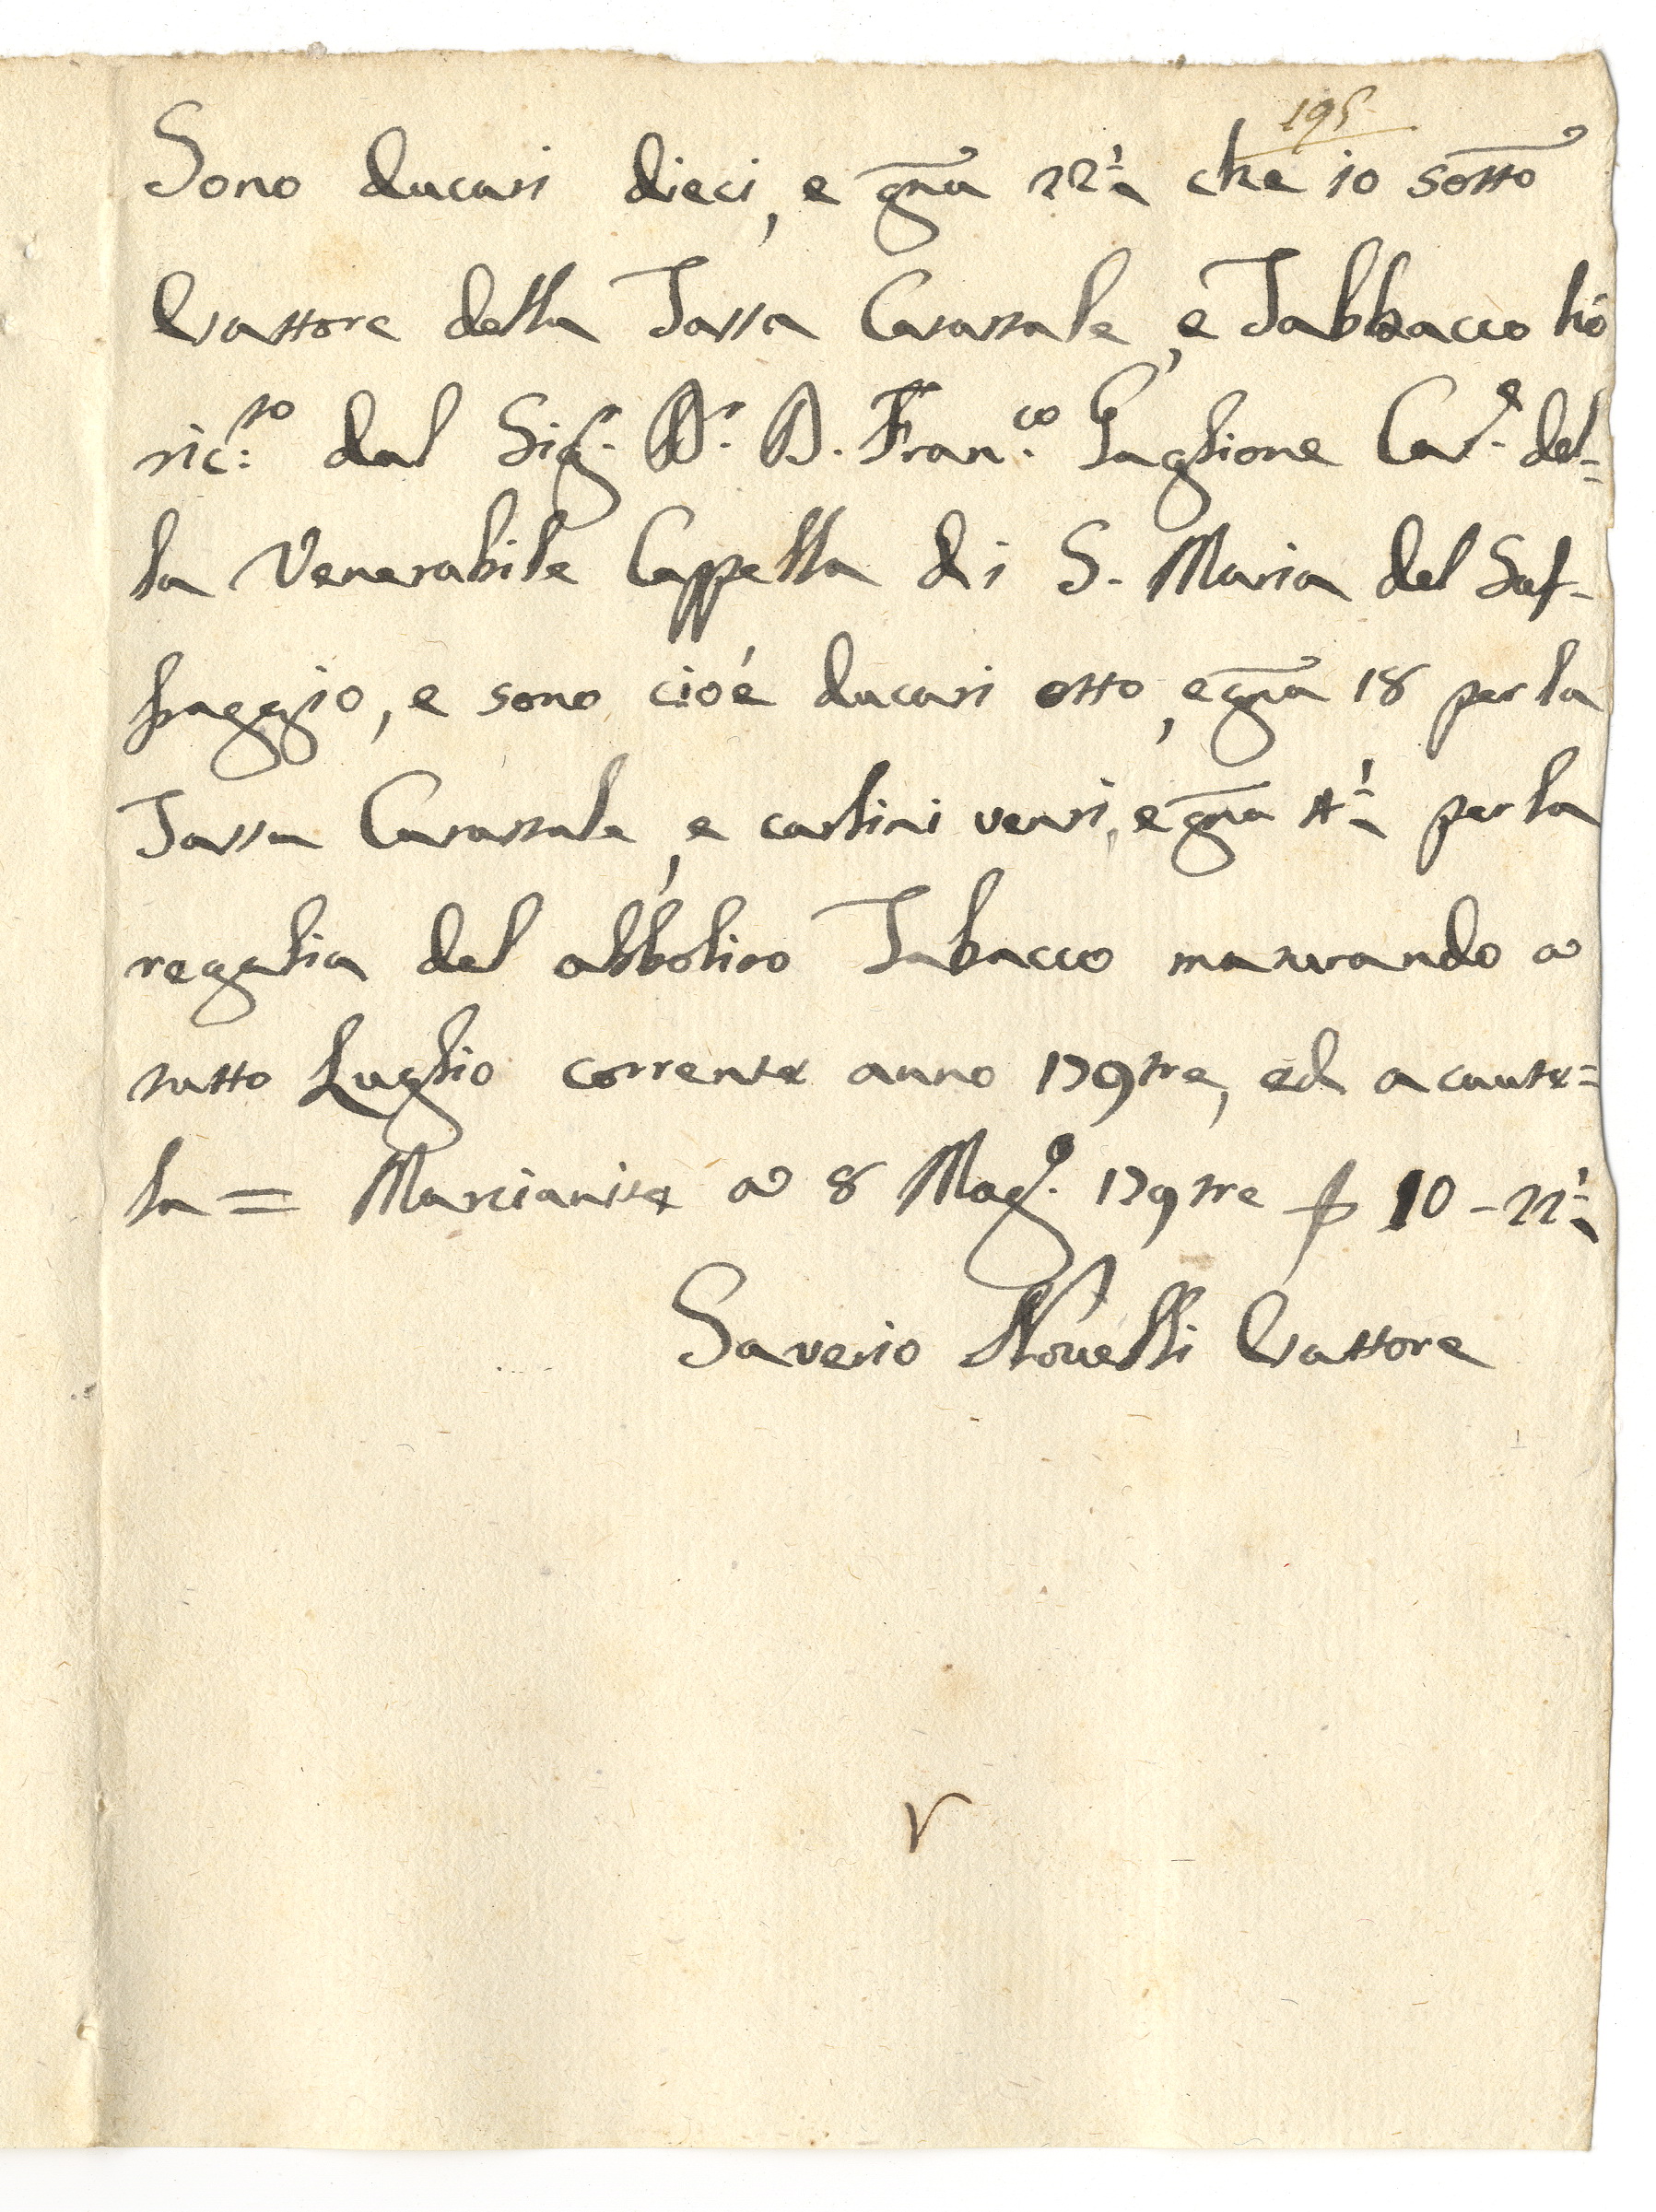 195
Sono ducati dieci, e gña 22½ che io sotto
Esattore della Tassa Catastale, e Tabbacco hò
ric:to dal Sig.r D.r D. Fran.co Paglione Cas.e del=
la Venerabile Cappella di S. Maria del Suf-
fraggio, e sono cioè ducati otto, e gña 18 per la
Tassa Catastale, e carlini venti, e gña 4½ per la
regalia del abbolito Tabacco maturando a
tutto Luglio corrente anno 179tre, ed a caute=
la = Marcianise a 8 Mag.o 179tre 10-22½
Saverio Novelli Esattore